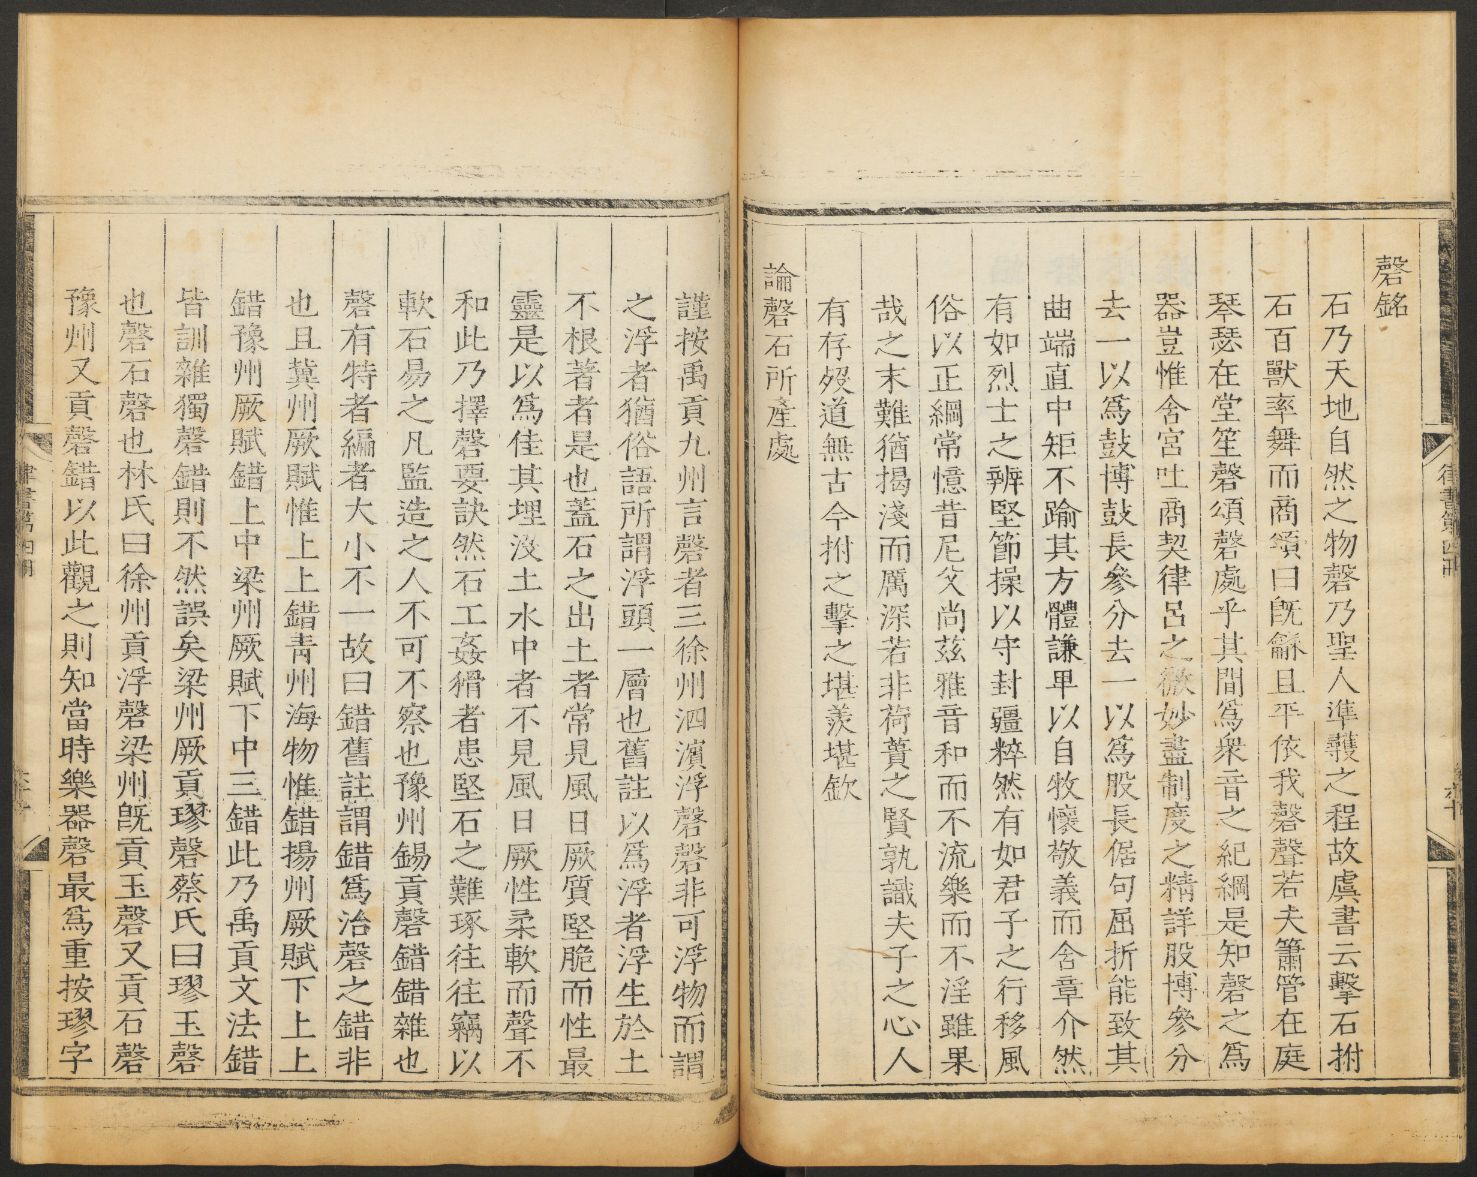 磬銘
石乃天地自然之物磬乃聖人準蒦之程故虞書云擊石拊
石百獸率舞而商頌曰旣龢且平依我磬聲若夫簫管在庭
琴瑟在堂笙磬頌磬處乎其間爲衆音之紀綱是知磬之爲
器豈惟舍宮吐商契律呂之徽妙盡制度之精詳股博參分
去一以爲鼓博鼓長參分去一以爲股長倨句屈折能致其
曲端直中矩不踰其方體謙卑以自牧懷敬義而含章介然
有如烈士之辨堅節操以守封疆粹然有如君子之行移風
俗以正綱常憶昔尼父尚兹雅音和而不流樂而不淫雖果
哉之末難猶揭淺而厲深若非荷蕢之賢孰識夫子之心人
有存歿道無古今拊之擊之堪羨堪欽
論磬石所產處
謹按禹貢九州言磬者三徐州泗濱浮磬磬非可浮物而謂
之浮者猶俗語所謂浮頭一層也舊註以爲浮者浮生於土
不根著者是也蓋石之出土者常見風日厥質堅脆而性最
靈是以爲佳其埋没土水中者不見風日厥性柔軟而聲不
和此乃擇磬要訣然石工姦猾者患堅石之難琢往往竊以
軟石易之凡監造之人不可不察也豫州錫貢磬錯錯雜也
磬有特者編者大小不一故曰錯舊註謂錯爲治磬之錯非
也且冀州厥賦惟上上錯青州海物惟錯揚州厥賦下上上
錯豫州厥賦錯上中梁州厥賦下中三錯此乃禹貢文法錯
皆訓雜獨磬錯則不然誤矣梁州厥貢璆磬蔡氏曰璆玉磬
也磬石磬也林氏曰徐州貢浮磬梁州旣貢玉磬又貢石磬
豫州又貢磬錯以此觀之則知當時樂器磬最爲重按璆字